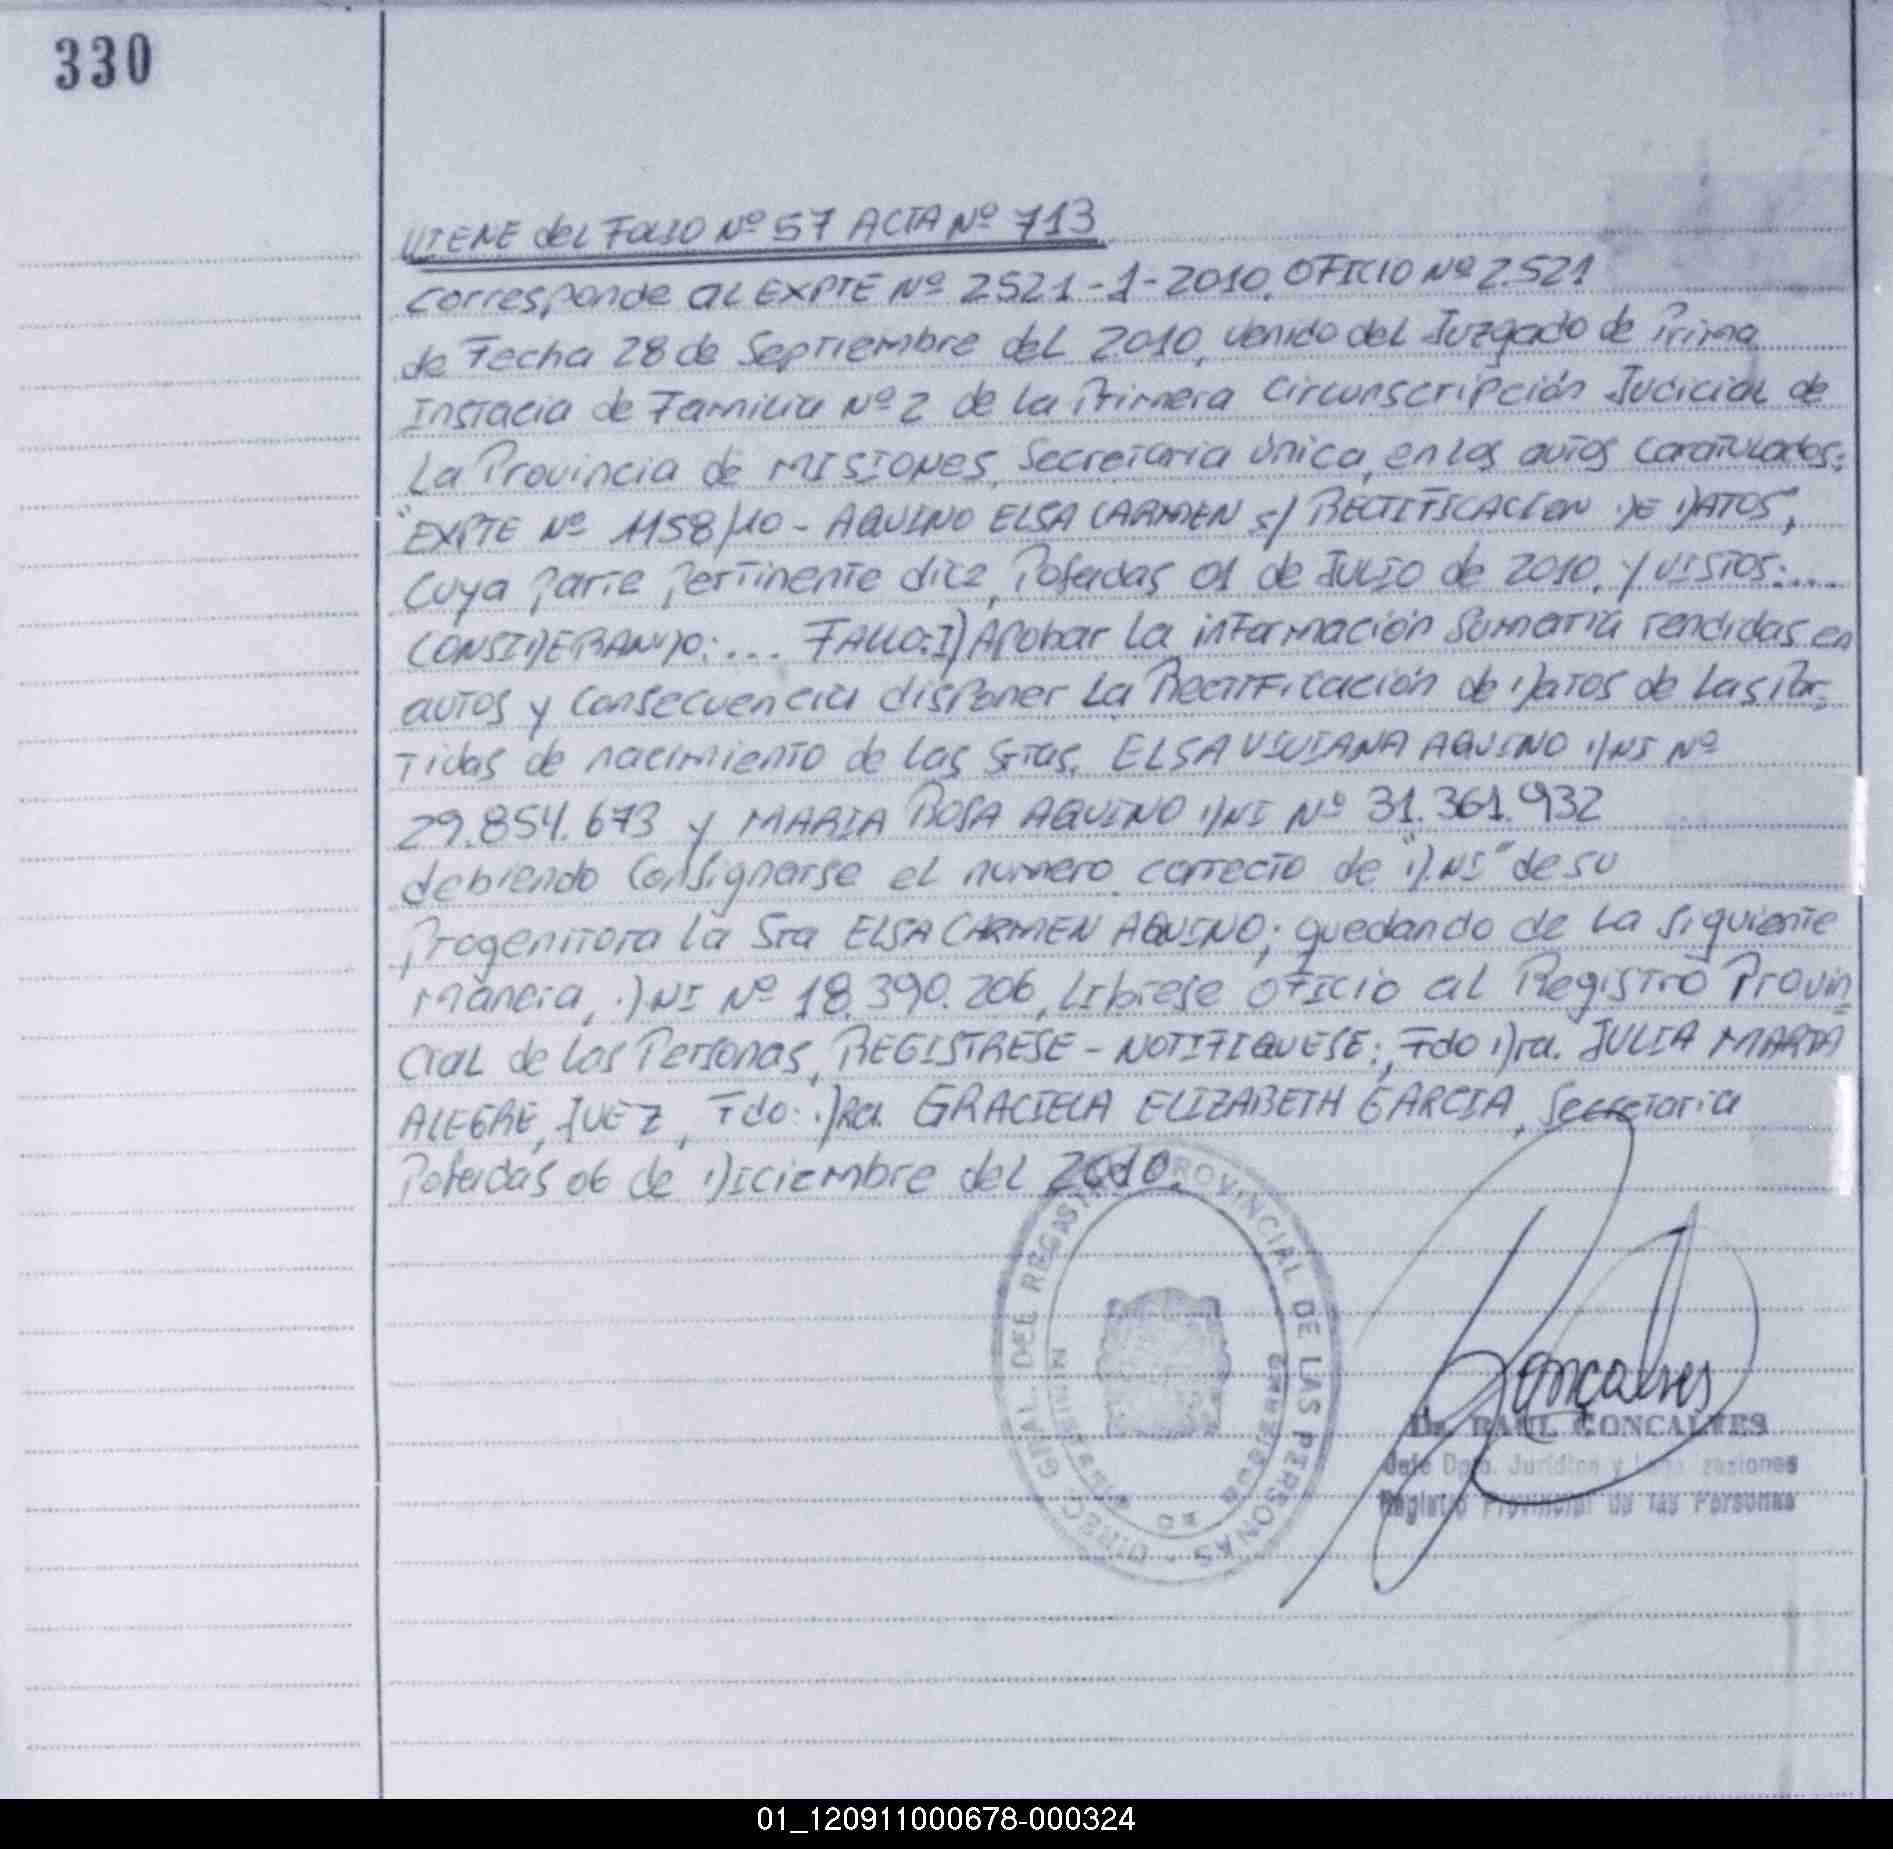 330
VIENE del FOLIO Nº 57 ACTA Nº 713
Corresponde al EXPTE Nº 2521-1-2010, OFICIO Nº 2.521
de Fecha 28 de Septiembre del 2010, venido del Juzgado de Prima
Instacia de Familia Nº 2 de la Primera Circunscripción Judicial de
La Provincia de MISIONES, Secretaria Única, en los autos caratulados:
"EXPTE Nº 1158/10 - AQUINO ELSA CARMEN s/ RECTIFICACION DE DATOS",
Cuya Parte Pertinente dice, Posadas 01 de JULIO de 2010, y VISTOS:....
CONSIDERANDO:... FALLO:I) Aprobar La información Sumaria rendidas en
autos y Consecuencia disponer La Rectificación de Datos de Las Par-
Tidas de nacimiento de las Srtas. ELSA VIVIANA AQUINO DNI Nº
29.854.673 y MARIA ROSA AQUINO DNI Nº 31.361.932
debiendo Consignarse el numero correcto de "D.NI" de su
Progenitora la Sra ELSA CARMEN AQUINO; quedando de La siguiente
Manera, D.NI Nº 18.390.206, Librese oficio al Registro Provin
cial de las Personas, REGISTRESE - NOTIFIQUESE:, Fdo Dra. JULIA MARTA
ALEGRE, JUEZ, Fdo: Dra. GRACIELA ELIZABETH GARCIA, Secretaria
Posadas 06 de Diciembre del 2010.
DIREC. GRAL. DEL REGISTRO PROVINCIAL DE LAS PERSONAS
Goncalves
Dr. RAUL GONCALVES
Jefe Dpto. Jurídico y
Registro Provincial de las Personas
01_120911000678-000324